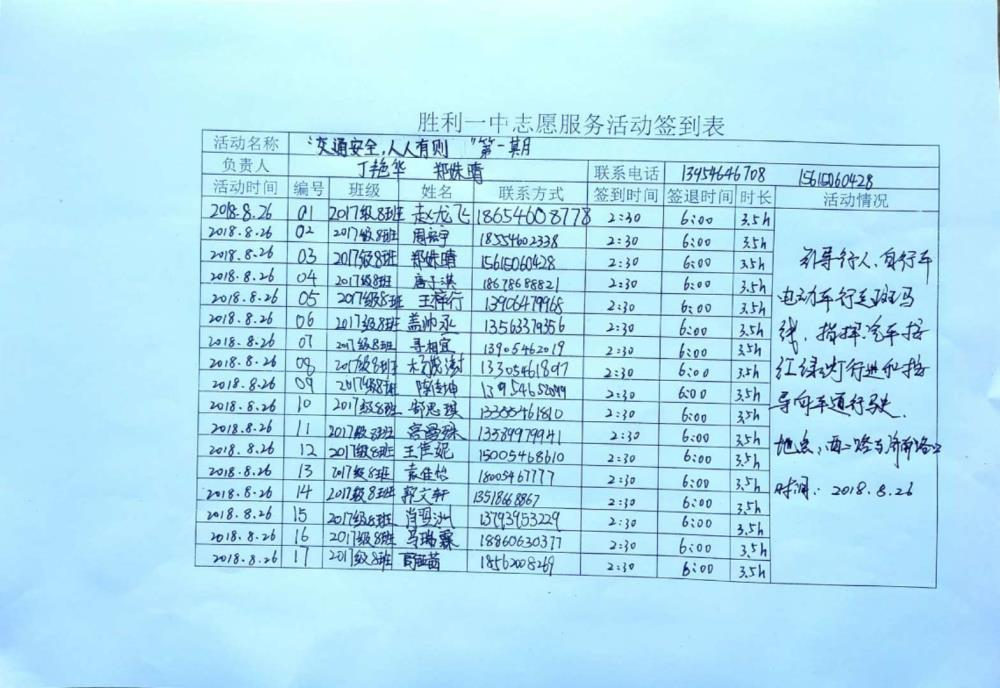 胜利一中志愿服务活动签到表
活动名称 “交通安全,人人有则”第一期
负责人 丁艳华 郑姝晴 联系电话 13454646708 15615060428
活动时间 编号 班级 姓名 联系方式 签到时间 签退时间 时长 活动情况
2018.8.26 01 2017级8班 赵龙飞 18654608778 2:30 6:00 3.5h
2018.8.26 02 2017级8班 18554602338 2:30 6:00 3.5h
2018.8.26 03 2017级8班 郑姝晴 15615060428 2:30 6:00 3.5h
2018.8.26 04 2017级8班 18678688821 2:30 6:00 3.5h
2018.8.26 05 2017级8班 王梓行 13906479968 2:30 6:00 3.5h
2018.8.26 06 2017级8班 盖帅丞 13563379356 2:30 6:00 3.5h
2018.8.26 07 2017级8班 寻相宜 13905462019 2:30 6:00 3.5h
2018.8.26 08 2017级8班 2:30 6:00 3.5h
2018.8.26 09 2017级8班 2:30 6:00 3.5h
2018.8.26 10 2017级8班 郝思琪 13305461810 2:30 6:00 3.5h
2018.8.26 11 2017级8班 13589979941 2:30 6:00 3.5h
2018.8.26 12 2017级8班 15005468610 2:30 6:00 3.5h
2018.8.26 13 2017级8班 袁佳怡 18005467777 2:30 6:00 3.5h
2018.8.26 14 2017级8班 郭文轩 13518668867 2:30 6:00 3.5h
2018.8.26 15 2017级8班 13793953229 2:30 6:00 3.5h
2018.8.26 16 2017级8班 马瑞霖 18860630377 2:30 6:00 3.5h
2018.8.26 17 2017级8班 18562008269 2:30 6:00 3.5h
引导行人、自行车
电动车行走斑马
线,指挥汽车按
红绿灯行进和按
导向车道行驶.
地点:西二路与济南路口
时间:2018.8.26